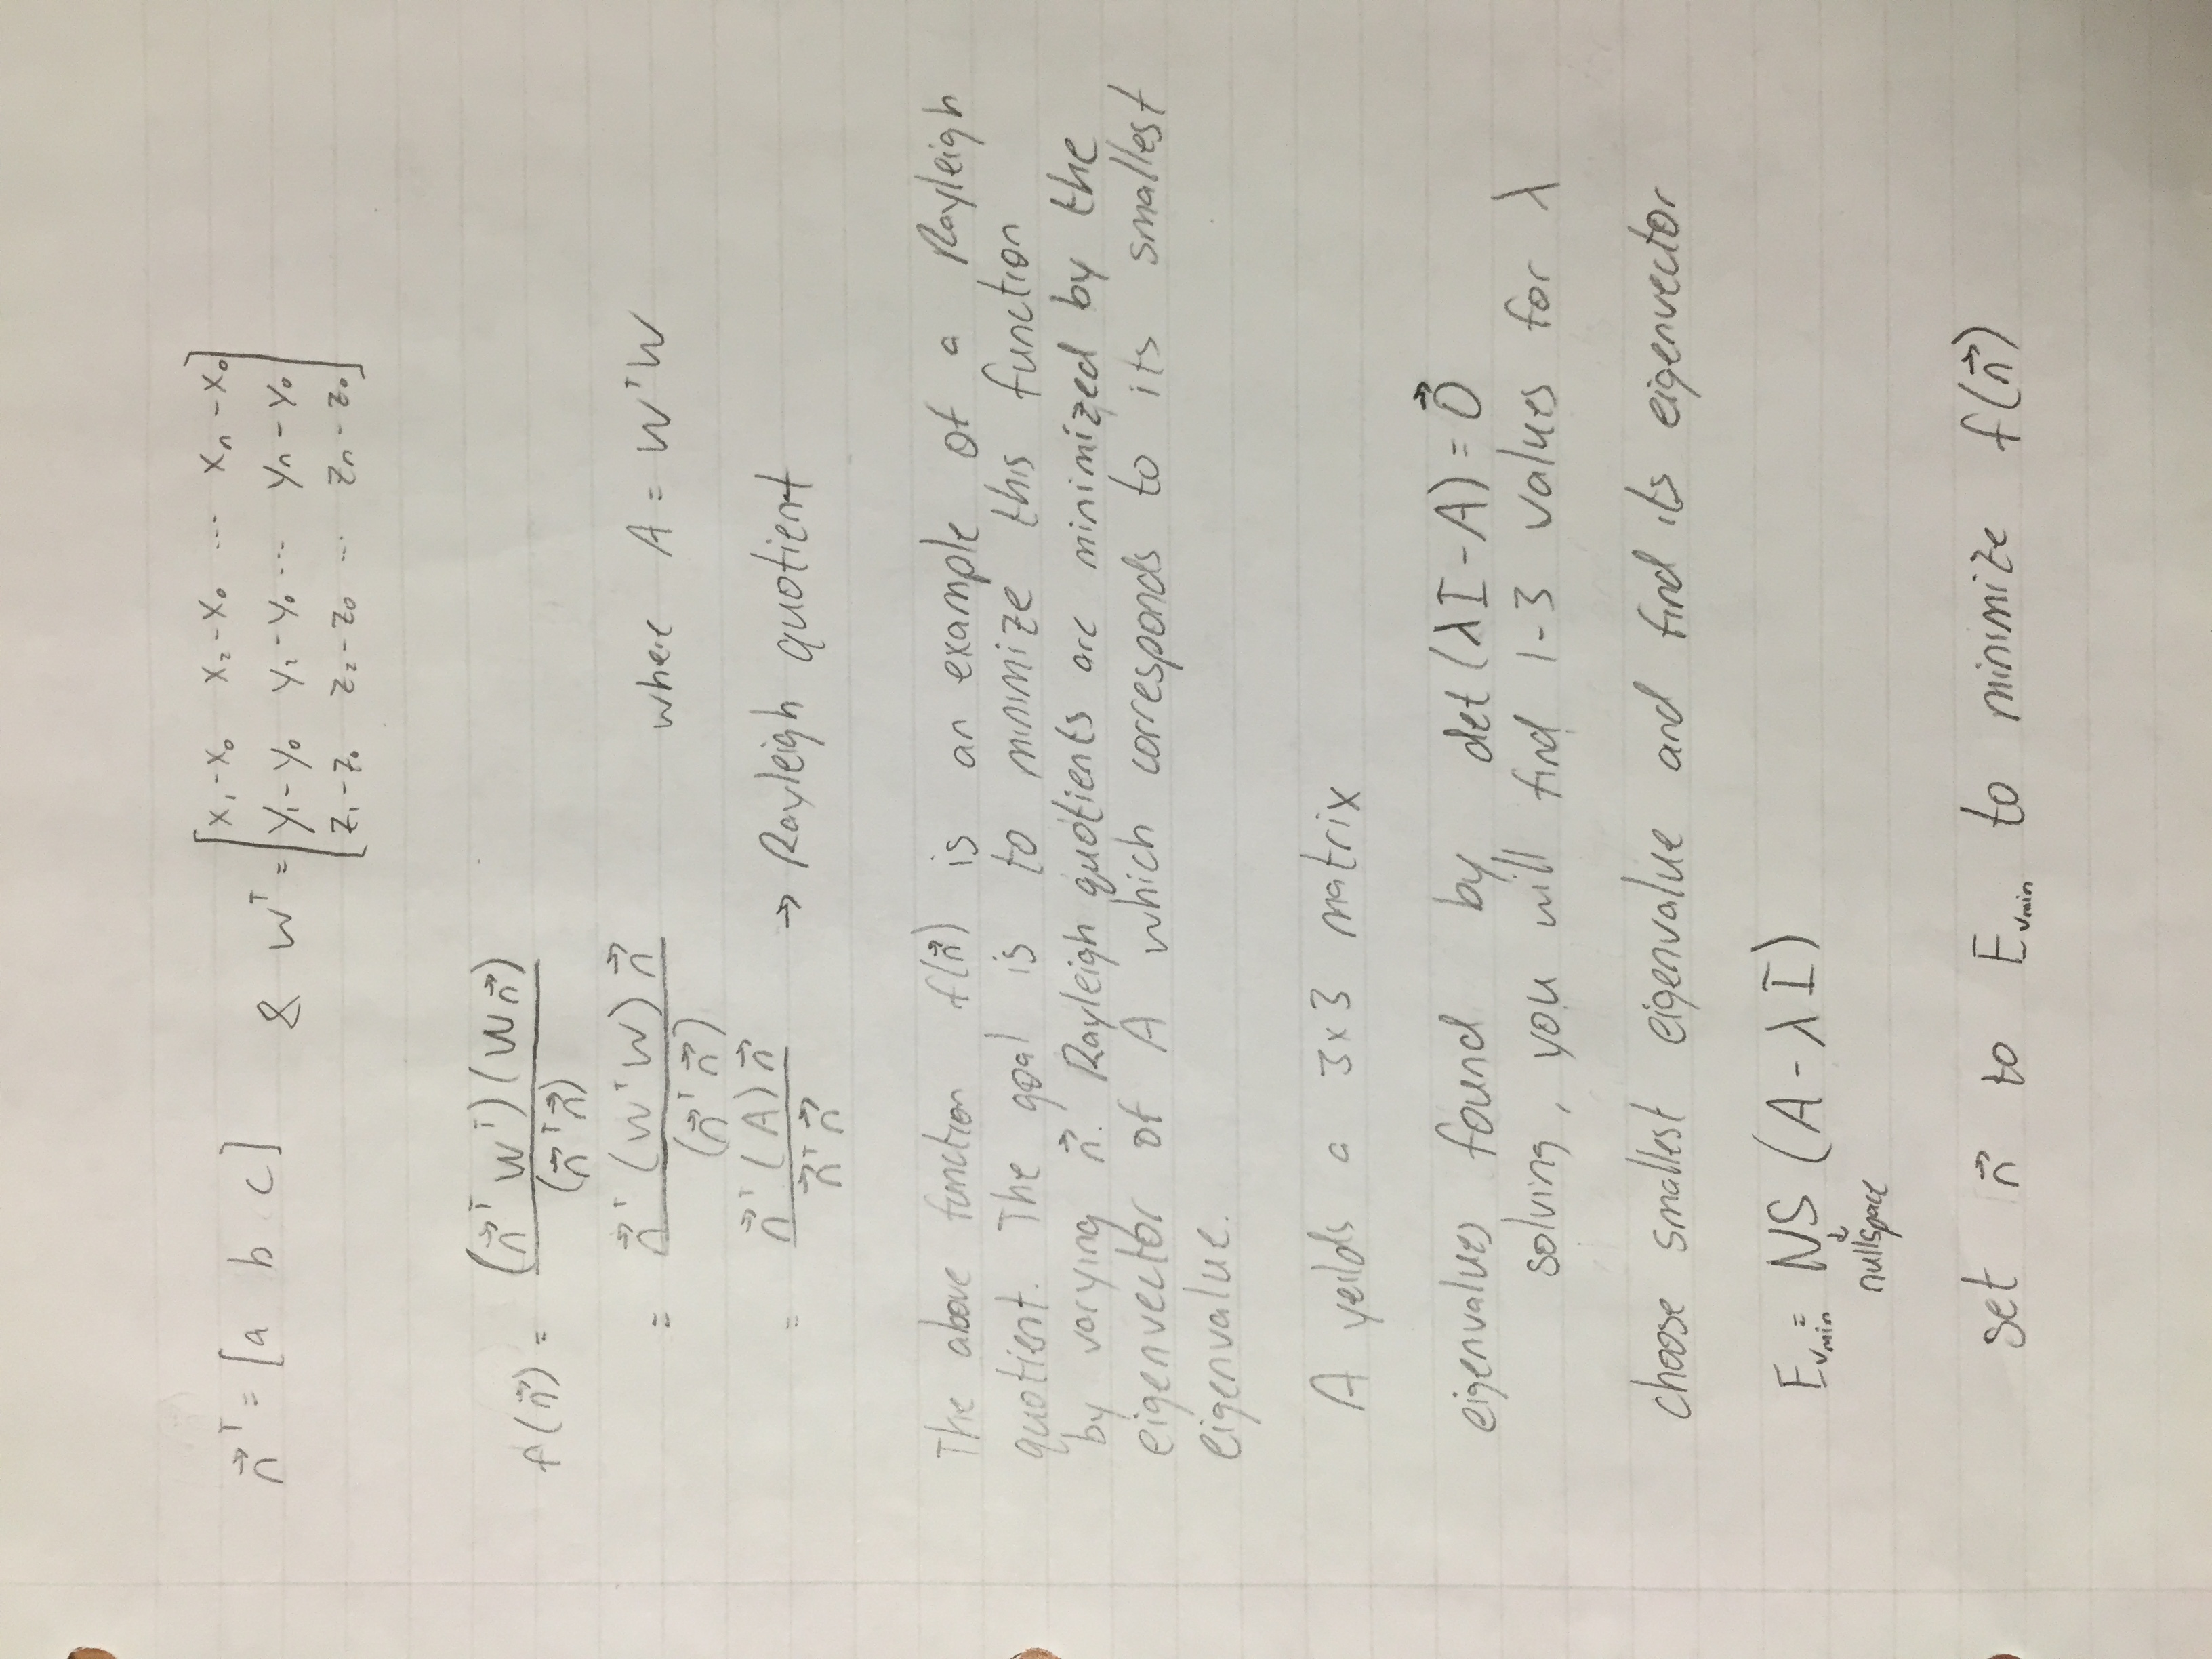 n⃗ᵀ = [a b c] & Wᵀ = [x₁-x₀ x₂-x₀ ... xₙ-x₀
y₁-y₀ y₂-y₀ ... yₙ-y₀
z₁-z₀ z₂-z₀ ... zₙ-z₀]
f(n⃗) = (n⃗ᵀ Wᵀ)(W n⃗) / (n⃗ᵀ n⃗)
= n⃗ᵀ (WᵀW) n⃗ / (n⃗ᵀ n⃗) where A = WᵀW
= n⃗ᵀ (A) n⃗ / n⃗ᵀ n⃗ → Rayleigh quotient
The above function f(n⃗) is an example of a Rayleigh
quotient. The goal is to minimize this function
by varying n⃗. Rayleigh quotients are minimized by the
eigenvector of A which corresponds to its smallest
eigenvalue.
A yeilds a 3x3 matrix
eigenvalues found by det(λI-A) = 0⃗
solving, you will find 1-3 values for λ
choose smallest eigenvalue and find its eigenvector
E_vmin = NS (A-λI)
↓
nullspace
set n⃗ to E_vmin to minimize f(n⃗)